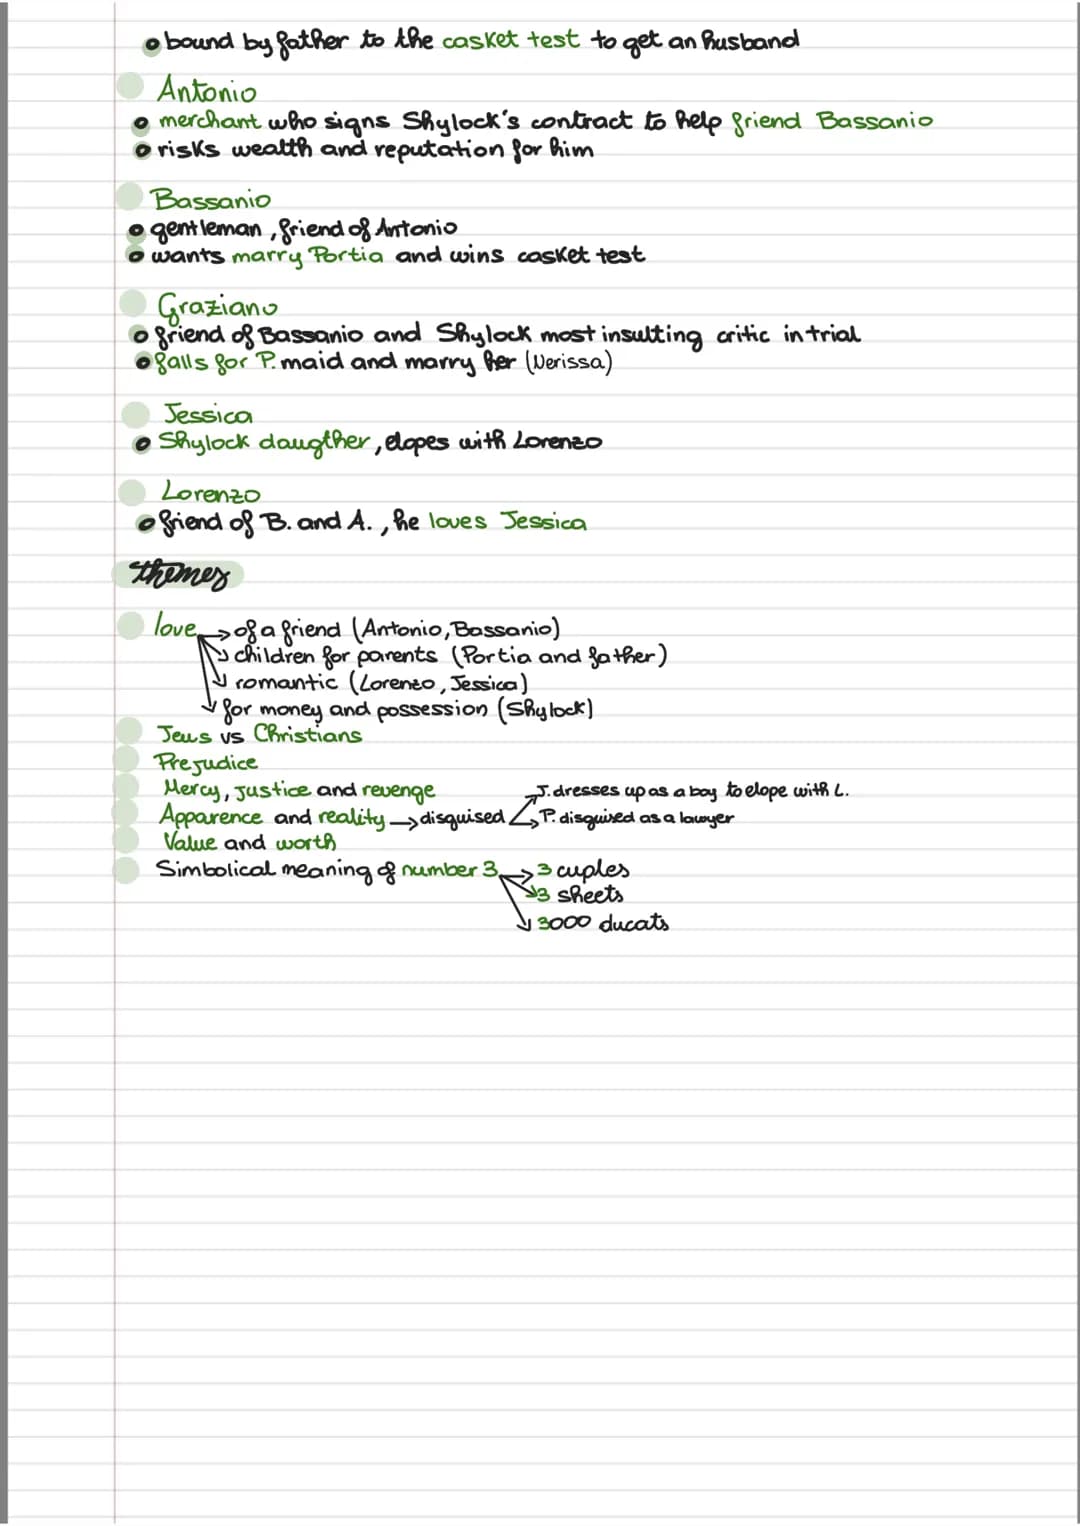 bound by father to the casket test to get an husband
Antonio
merchant who signs Shylock's contract to help friend Bassanio
risks wealth and reputation for him
Bassanio
gentleman, friend of Antonio
wants marry Portia and wins casket test
Graziano
friend of Bassanio and Shylock most insulting critic in trial
falls for P. maid and marry her (Nerissa)
Jessica
Shylock daugther, elopes with Lorenzo
Lorenzo
friend of B. and A., he loves Jessica
themes
love → of a friend (Antonio, Bassanio)
children for parents (Portia and father)
romantic (Lorenzo, Jessica)
for money and possession (Shylock)
Jews vs Christians
Prejudice
Mercy, justice and revenge
J. dresses up as a boy to elope with L.
Apparence and reality → disguised P. disguised as a lawyer
Value and worth
Simbolical meaning of number 3 → 3 cuples
3 sheets
3000 ducats